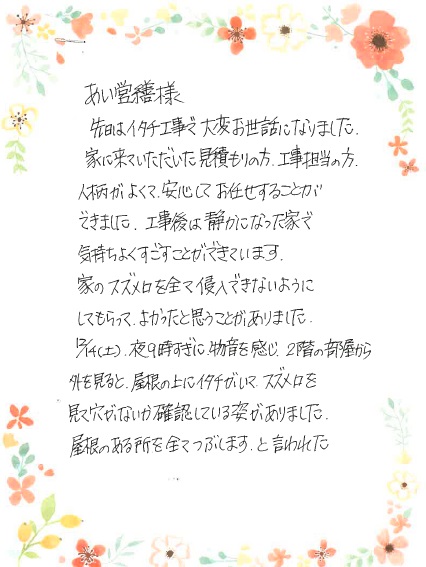 あい営繕様
先日はイタチ工事で大変お世話になりました.
家に来ていただいた見積もりの方.工事担当の方.
人柄がよくて.安心してお任せすることが
できました.工事後は静かになった家で
気持ちよくすごすことができています.
家のスズメ口を全て侵入できないように
してもらって.よかったと思うことがありました.
12/14(土).夜9時すぎに.物音を感じ.2階の部屋から
外を見ると.屋根の上にイタチがいて.スズメ口を
見て穴がないか確認している姿がありました.
屋根のある所を全てつぶします.と言われた